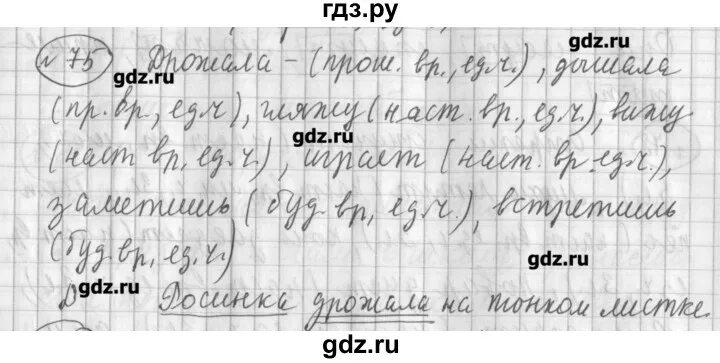 гдз.ру
№ 75 Дрожала – (прош. вр., ед.ч.), дышала
gdz.ru
(пр. вр., ед.ч), гляжу (наст. вр., ед.ч.), вижу
gdz.ru
(наст вр, ед.ч.), играет (наст. вр. ед.ч.),
заметишь (буд вр, ед.ч.), встретишь
(буд вр, ед.ч.)
gdz.ru
gdz.ru
Росинка дрожала на тонком листке.
gdz.ru